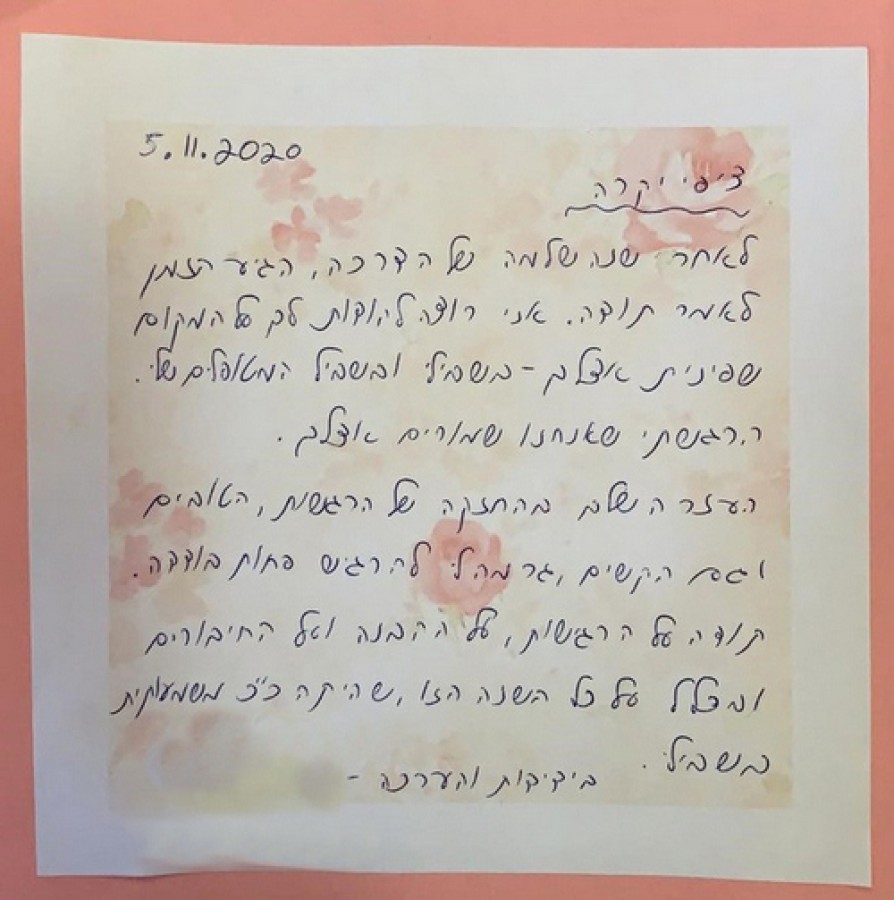 5.11.2020
ציפי יקרה
לאחר שנה שלמה של הדרכה, הגיע הזמן
לאמר תודה. אני רוצה להודות לך על המקום
שפינית אצלך - בשבילי ובשביל המטופלים שלי.
הרגשתי שאנחנו שמורים אצלך.
העזרה שלך בהחזקה של הרגשות, הטובים
וגם הקשים, גרמה לי להרגיש פחות בודדה.
תודה על הרגישות, על ההבנה ועל החיבורים
ובכלל על כל השנה הזו, שהיתה כ"כ משמעותית
בשבילי.
בידידות והערכה -